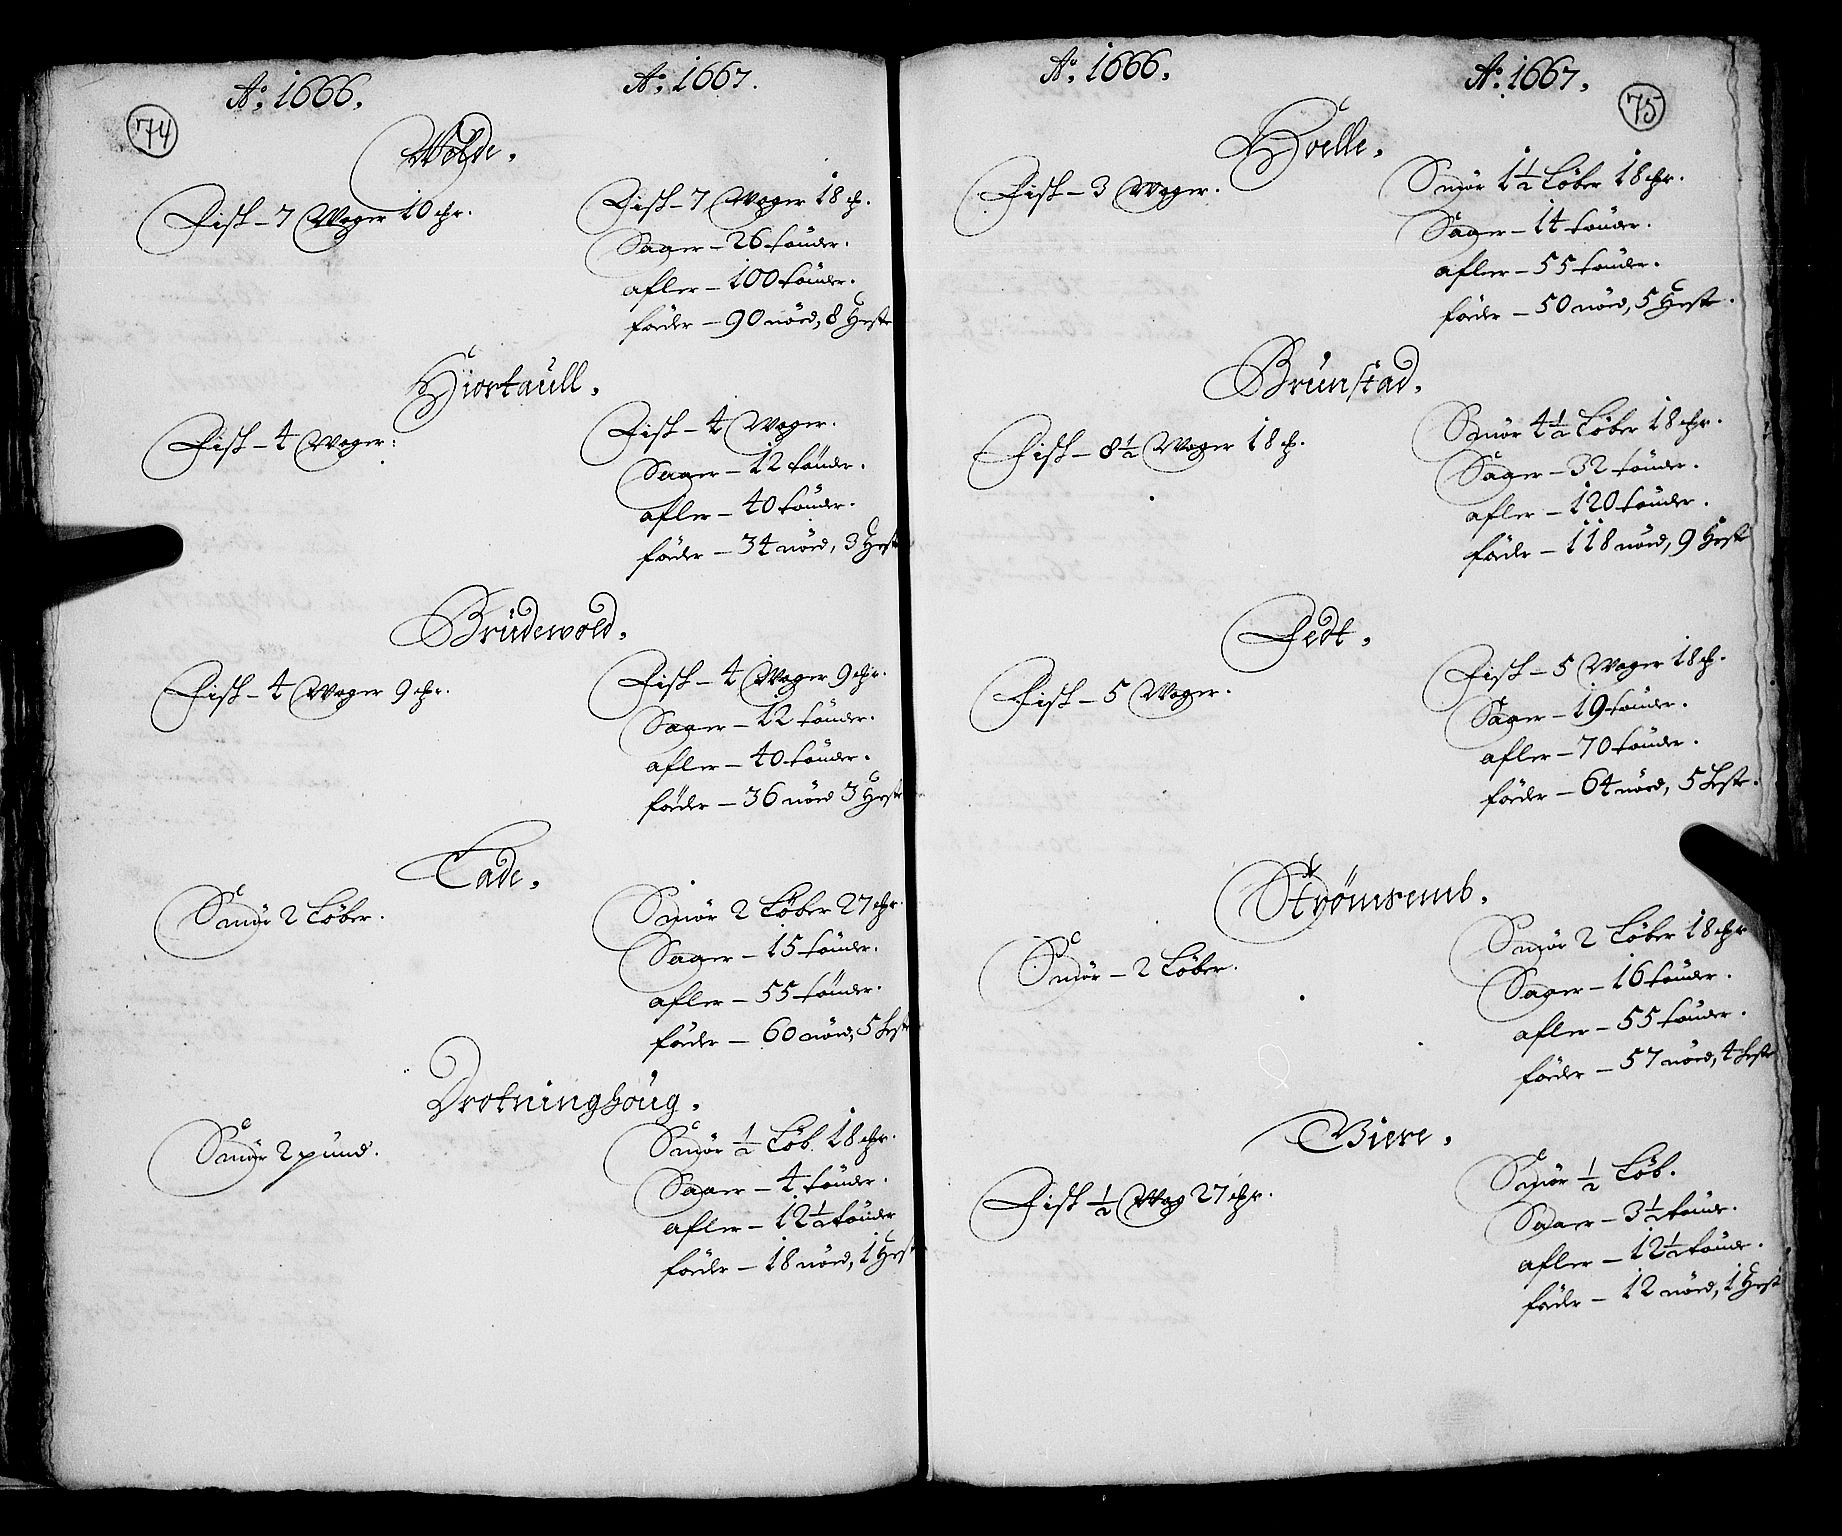 74
Ao. 1666. Ao. 1667.
Wolde.
Fisk – 7 Woger 10 chr.
Fisk – 7 Woger 18 ch.
Saaer – 26 tönder.
afler – 100 tönder.
föder – 90 nöed, 8 Heste
Hiortaull.
Fisk – 4 Woger.
Fisk – 4 Woger.
Saaer – 12 tönder.
afler – 40 tönder.
föder – 34 nöed, 3 Hest
Brüdewold.
Fisk – 4 Woger 9 chr.
Fisk – 4 Woger 9 chr.
Saaer – 12 tönder.
afler – 40 tönder.
föder – 36 nöed 3 Heste
Tade.
Smör 2 Löber.
Smör 2 Löber 27 chr.
Saaer – 15 tönder.
afler – 55 tönder.
föder – 60 nöed, 5 Hest
Drotninghöug.
Smör 2 pund.
Smör ½ Löb. 18 chr.
Saaer – 4 tönder.
afler – 12½ tönder
föder – 18 nöed, 1 Hest
75
Ao. 1666. Ao. 1667.
Hoelle.
Fisk – 3 Woger.
Smör 1½ Löber 18 chr.
Saaer – 14 tönder.
afler – 55 tönder.
föder – 50 nöed, 5 Heste.
Brunstad.
Fisk – 8½ Woger 18 ch.
Smör 4½ Löber 18 chr.
Saaer – 32 tönder.
afler – 120 tönder.
föder – 118 nöed, 9 Hest
Fedt.
Fisk – 5 Woger.
Fisk – 5 Woger 18 ch.
Saaer – 19 tönder.
afler – 70 tönder.
föder – 64 nöed, 5 Heste.
Strömsemb.
Smör – 2 Löber.
Smör 2 Löber 18 chr
Saaer – 16 tönder.
afler – 55 tönder.
föder – 57 nöed, 4 Heste
Biere.
Fisk ½ Wog 27 chr.
Smör ½ Löb.
Saaer – 3½ tönder.
afler – 12½ tönder.
föder – 12 nöed, 1 Hest